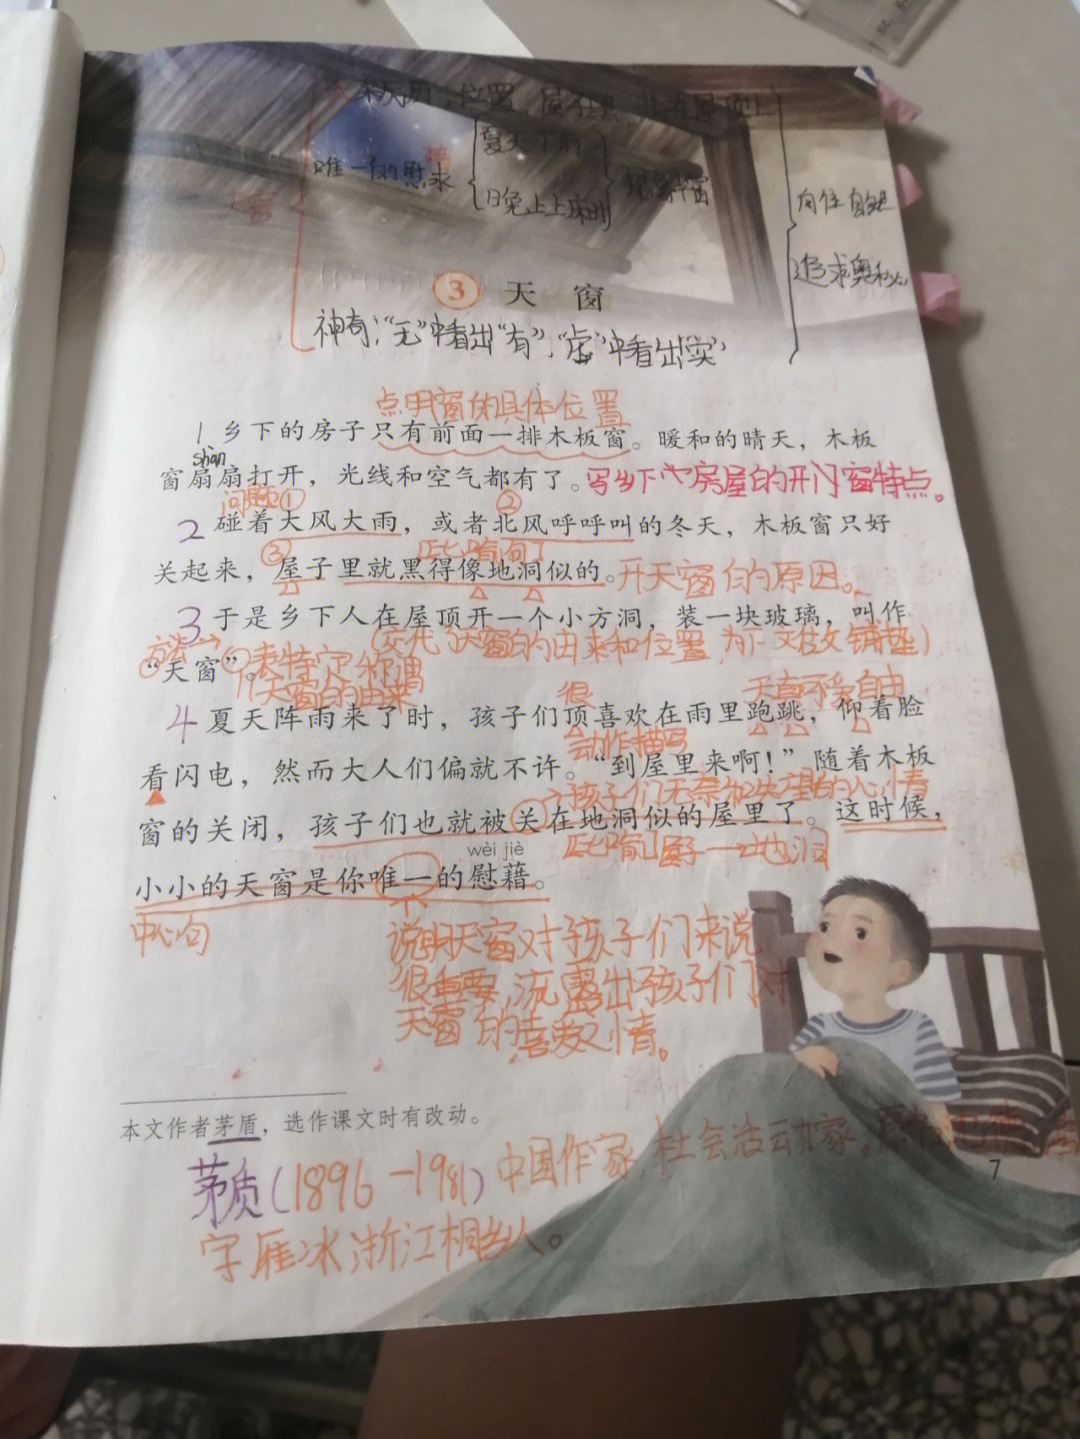 来历、位置
唯一的慰藉
夏天下雨
晚上上床
天窗
向往自由
追求奥秘
3 天窗
神奇:“无”中看出“有”,“虚”中看出“实”
点明窗的具体位置
1 乡下的房子只有前面一排木板窗。暖和的晴天,木板
shàn
窗扇扇打开,光线和空气都有了。写乡下房屋的开门窗特点。
问题① ②
2 碰着大风大雨,或者北风呼呼叫的冬天,木板窗只好
③ 比喻句
关起来,屋子里就黑得像地洞似的。开天窗的原因。
3 于是乡下人在屋顶开一个小方洞,装一块玻璃,叫作
(交代了天窗的由来和位置,为下文作铺垫)
“天窗”。
表特定称谓
天窗的由来
很 天真不象自由
4 夏天阵雨来了时,孩子们顶喜欢在雨里跑跳,仰着脸
动作描写
看闪电,然而大人们偏就不许。“到屋里来啊!”随着木板
孩子们无奈加失望的心情
窗的关闭,孩子们也就被关在地洞似的屋里了。这时候,
比喻 屋子→地洞
wèi jiè
小小的天窗是你唯一的慰藉。
中心句
说明天窗对孩子们来说
很重要,流露出孩子们对
天窗的喜爱之情。
本文作者茅盾,选作课文时有改动。
茅质(1896-1981)中国作家,社会活动家。
7
字雁冰浙江桐乡人。